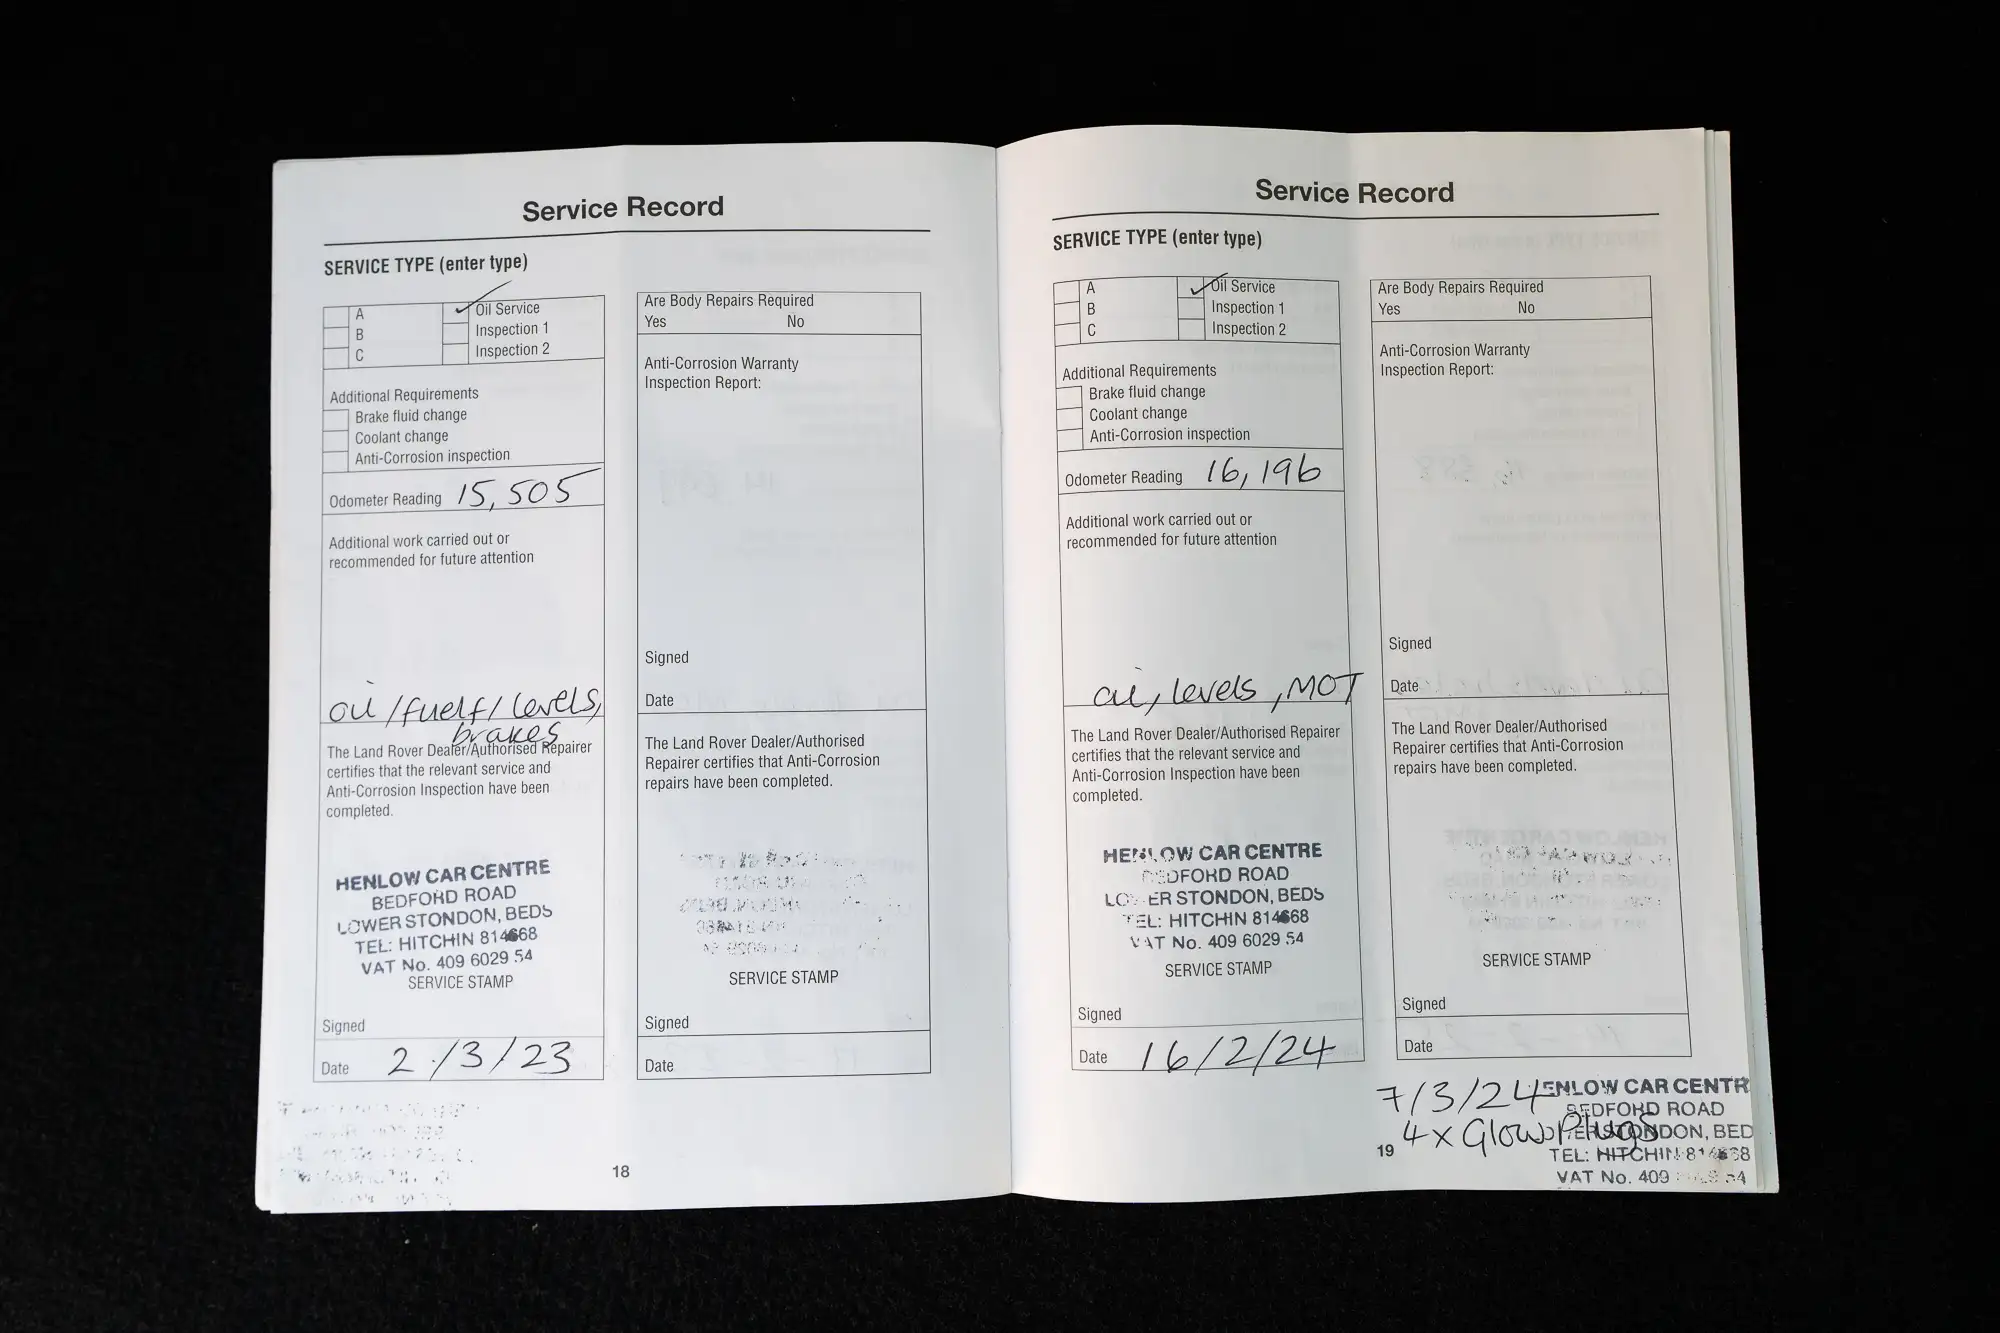 Service Record
SERVICE TYPE (enter type)
A
B
C
Oil Service
Inspection 1
Inspection 2
Additional Requirements
Brake fluid change
Coolant change
Anti-Corrosion inspection
Odometer Reading 15,505
Additional work carried out or
recommended for future attention
oil/fuelf/levels,
brakes
The Land Rover Dealer/Authorised Repairer
certifies that the relevant service and
Anti-Corrosion Inspection have been
completed.
HENLOW CAR CENTRE
BEDFORD ROAD
LOWER STONDON, BEDS
TEL: HITCHIN 814668
VAT No. 409 6029 54
SERVICE STAMP
Signed
Date 2/3/23
Are Body Repairs Required
Yes No
Anti-Corrosion Warranty
Inspection Report:
Signed
Date
The Land Rover Dealer/Authorised
Repairer certifies that Anti-Corrosion
repairs have been completed.
SERVICE STAMP
Signed
Date
18
Service Record
SERVICE TYPE (enter type)
A
B
C
Oil Service
Inspection 1
Inspection 2
Additional Requirements
Brake fluid change
Coolant change
Anti-Corrosion inspection
Odometer Reading 16,196
Additional work carried out or
recommended for future attention
oil, levels, MOT
The Land Rover Dealer/Authorised Repairer
certifies that the relevant service and
Anti-Corrosion Inspection have been
completed.
HENLOW CAR CENTRE
BEDFORD ROAD
LOWER STONDON, BEDS
TEL: HITCHIN 814668
VAT No. 409 6029 54
SERVICE STAMP
Signed
Date 16/2/24
Are Body Repairs Required
Yes No
Anti-Corrosion Warranty
Inspection Report:
Signed
Date
The Land Rover Dealer/Authorised
Repairer certifies that Anti-Corrosion
repairs have been completed.
SERVICE STAMP
Signed
Date
7/3/24
4x Glow Plugs
ENLOW CAR CENTR
BEDFORD ROAD
STONDON, BED
TEL: HITCHIN
VAT No. 409
19